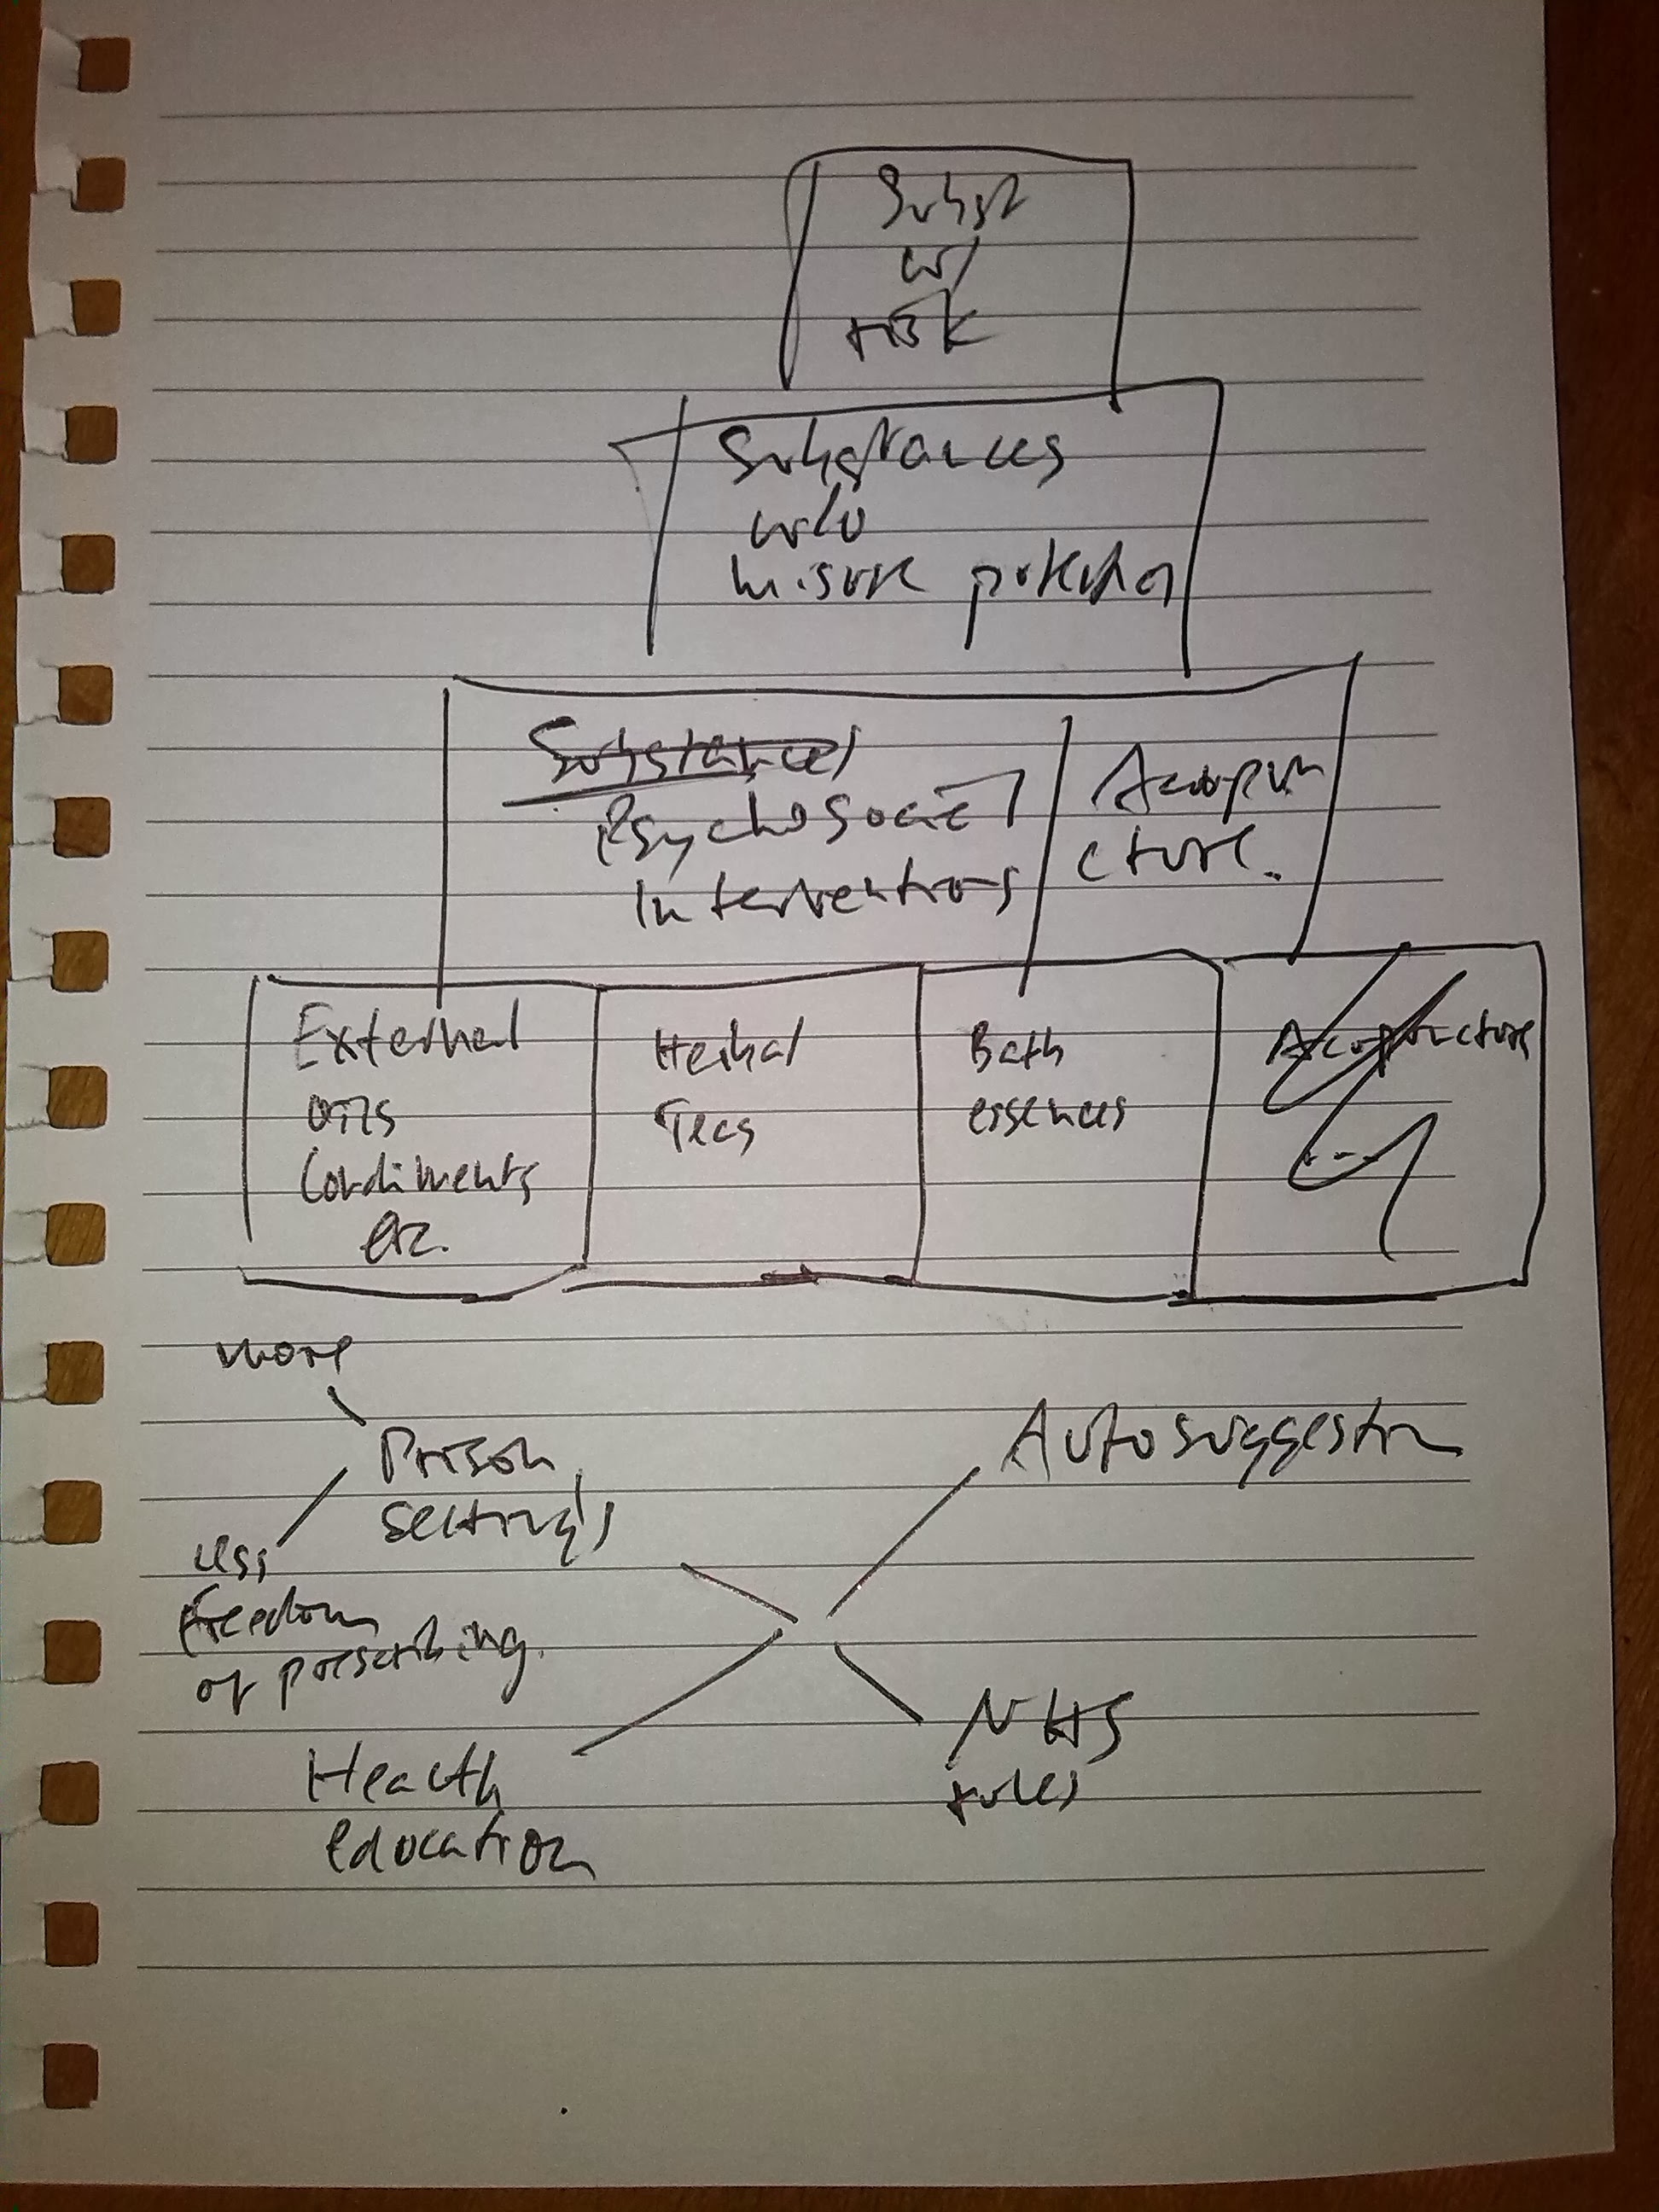 Subst
w/
risk
Substances
w/o
misuse potential
Substances
Psychosocial
Interventions
Acupun
cture.
External
oils
Condiments
etc.
Herbal
Teas
Bath
essences
Acupuncture
...
more
Prison
settings
less
freedom
of prescribing.
Autosuggestion
Health
education
NHS
rules